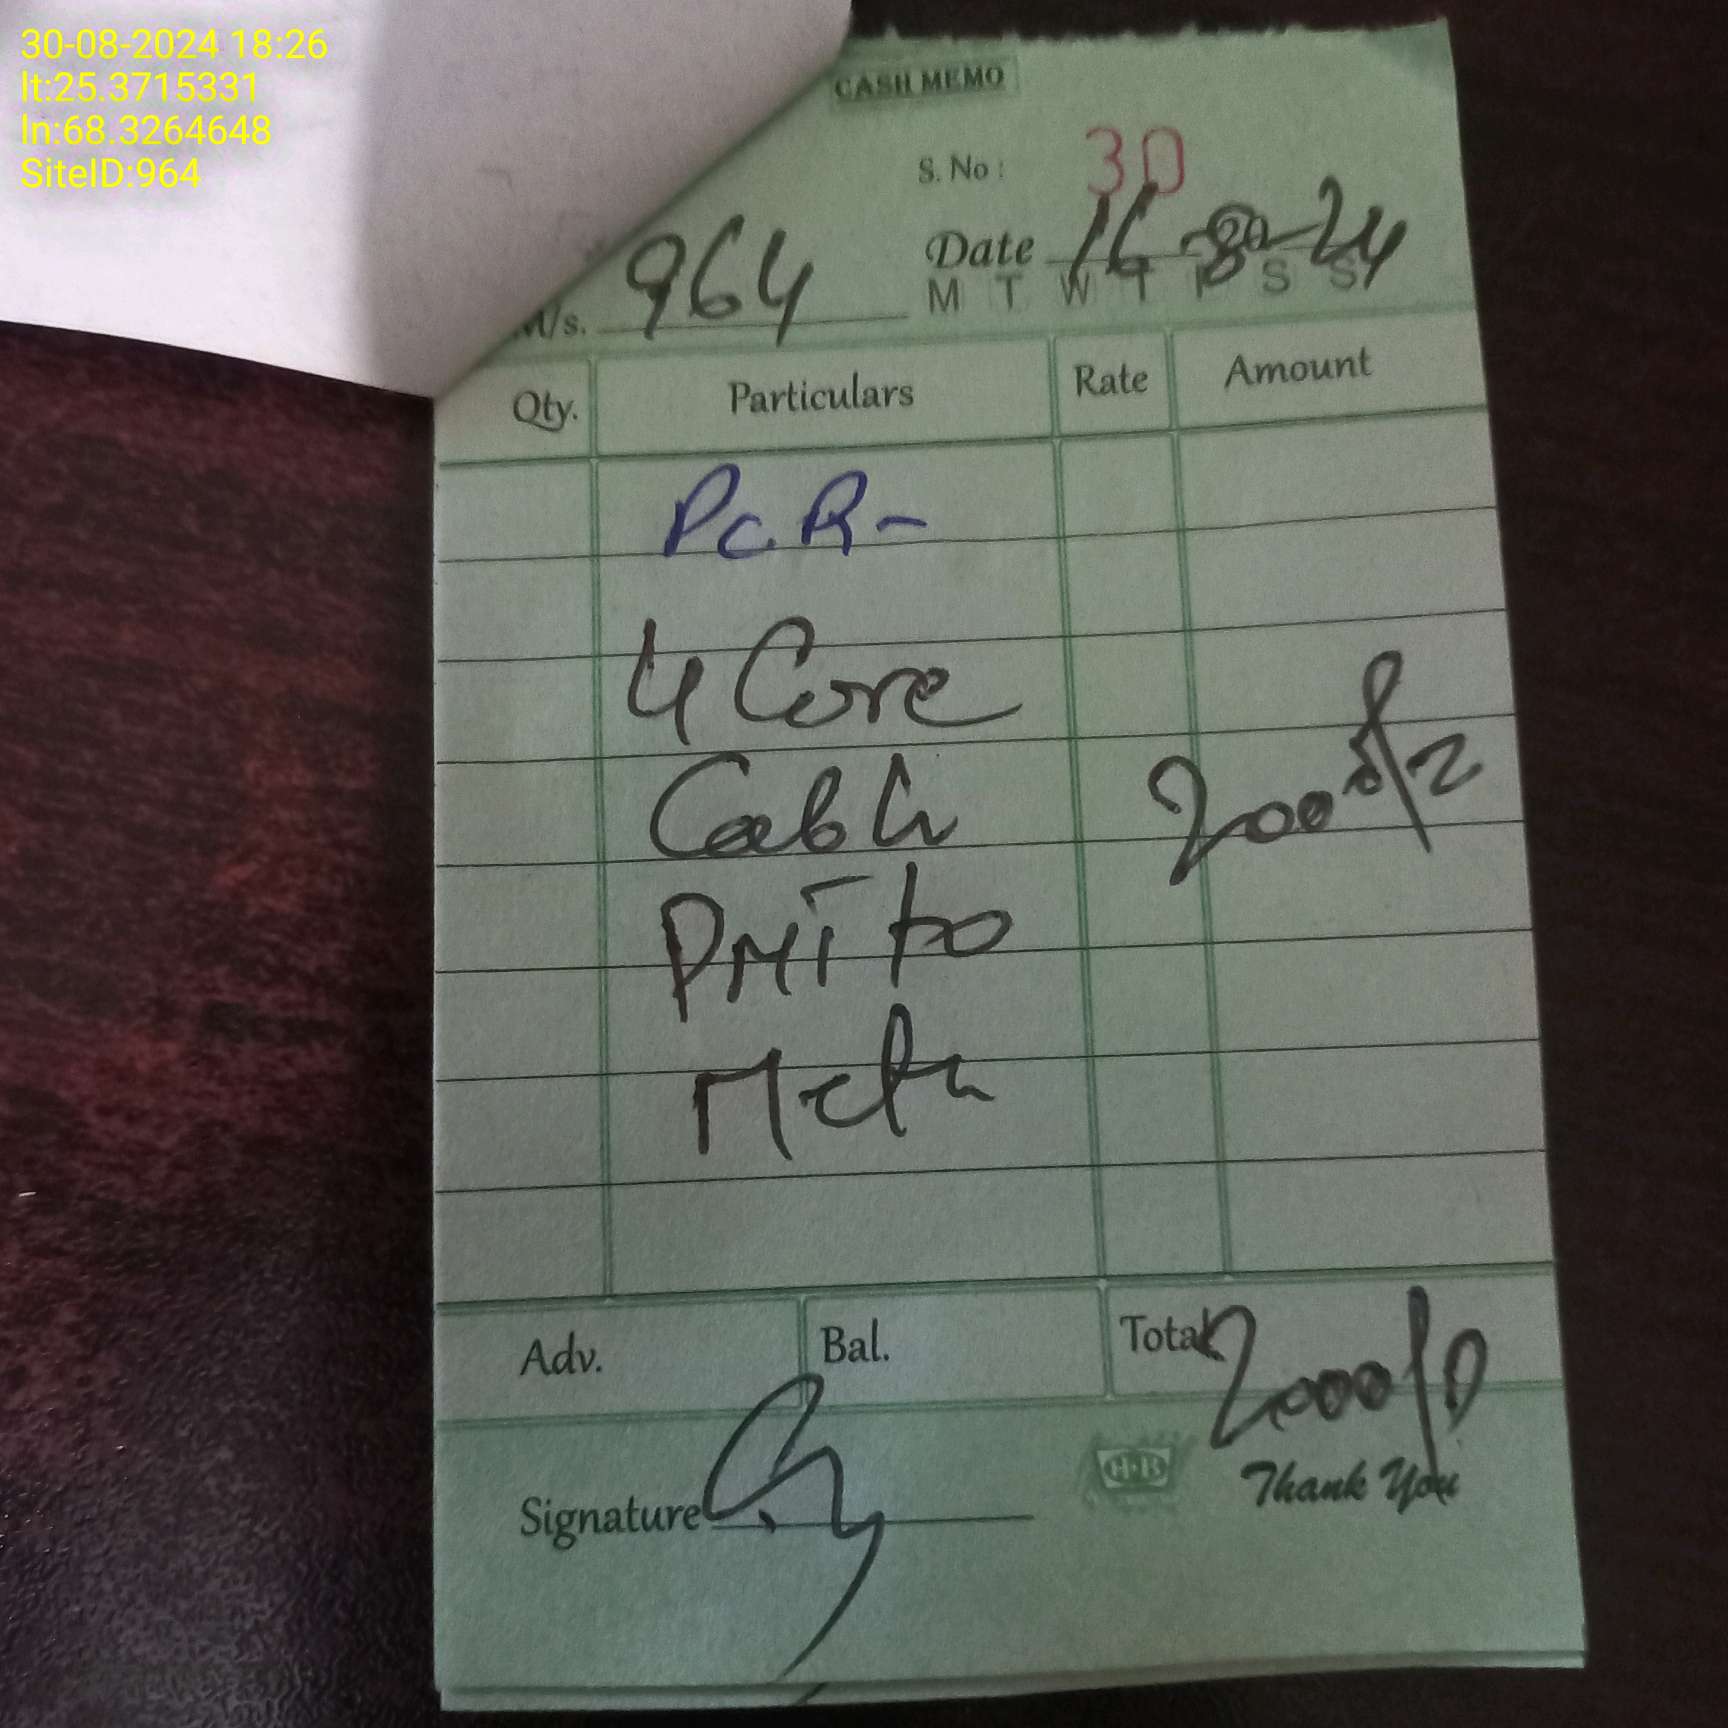 30-08-2024 18:26
lt:25.3715331
ln:68.3264648
SiteID:964
CASH MEMO
S. No : 30
M/s. 964 Date 16-8-24
M T W T F S S
Qty. Particulars Rate Amount
PCR-
4 Core
Cable
PMT to 2000/
Meter
Adv. Bal. Total 2000/
H·B
Thank You
Signature